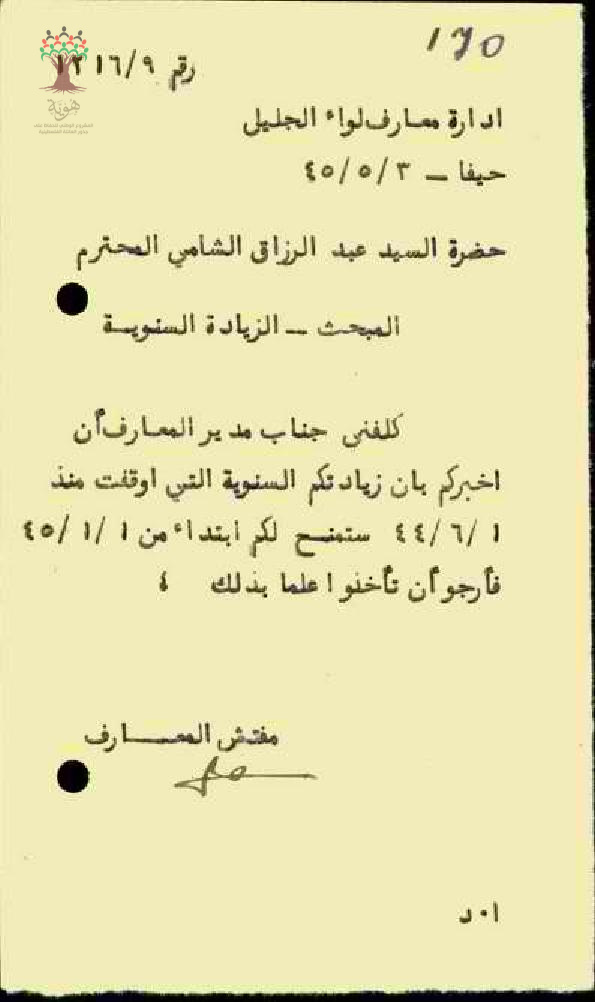 ١٦٥
رقم ١٢١٦/٩
هوية
ادارة معارف لواء الجليل
حيفا – ٤٥/٥/٣
حضرة السيد عبد الرزاق الشامي المحترم
المبحث – الزيادة السنويـة
كلفنى جناب مدير المعارف أن
اخبركم بان زيادتكم السنوية التي اوقفت منذ
٤٤/٦/١ ستمنـح لكم ابتداء من ٤٥/١/١
فأرجو أن تأخذوا علما بذلك ،
مفتش المعـــارف
ا٠د